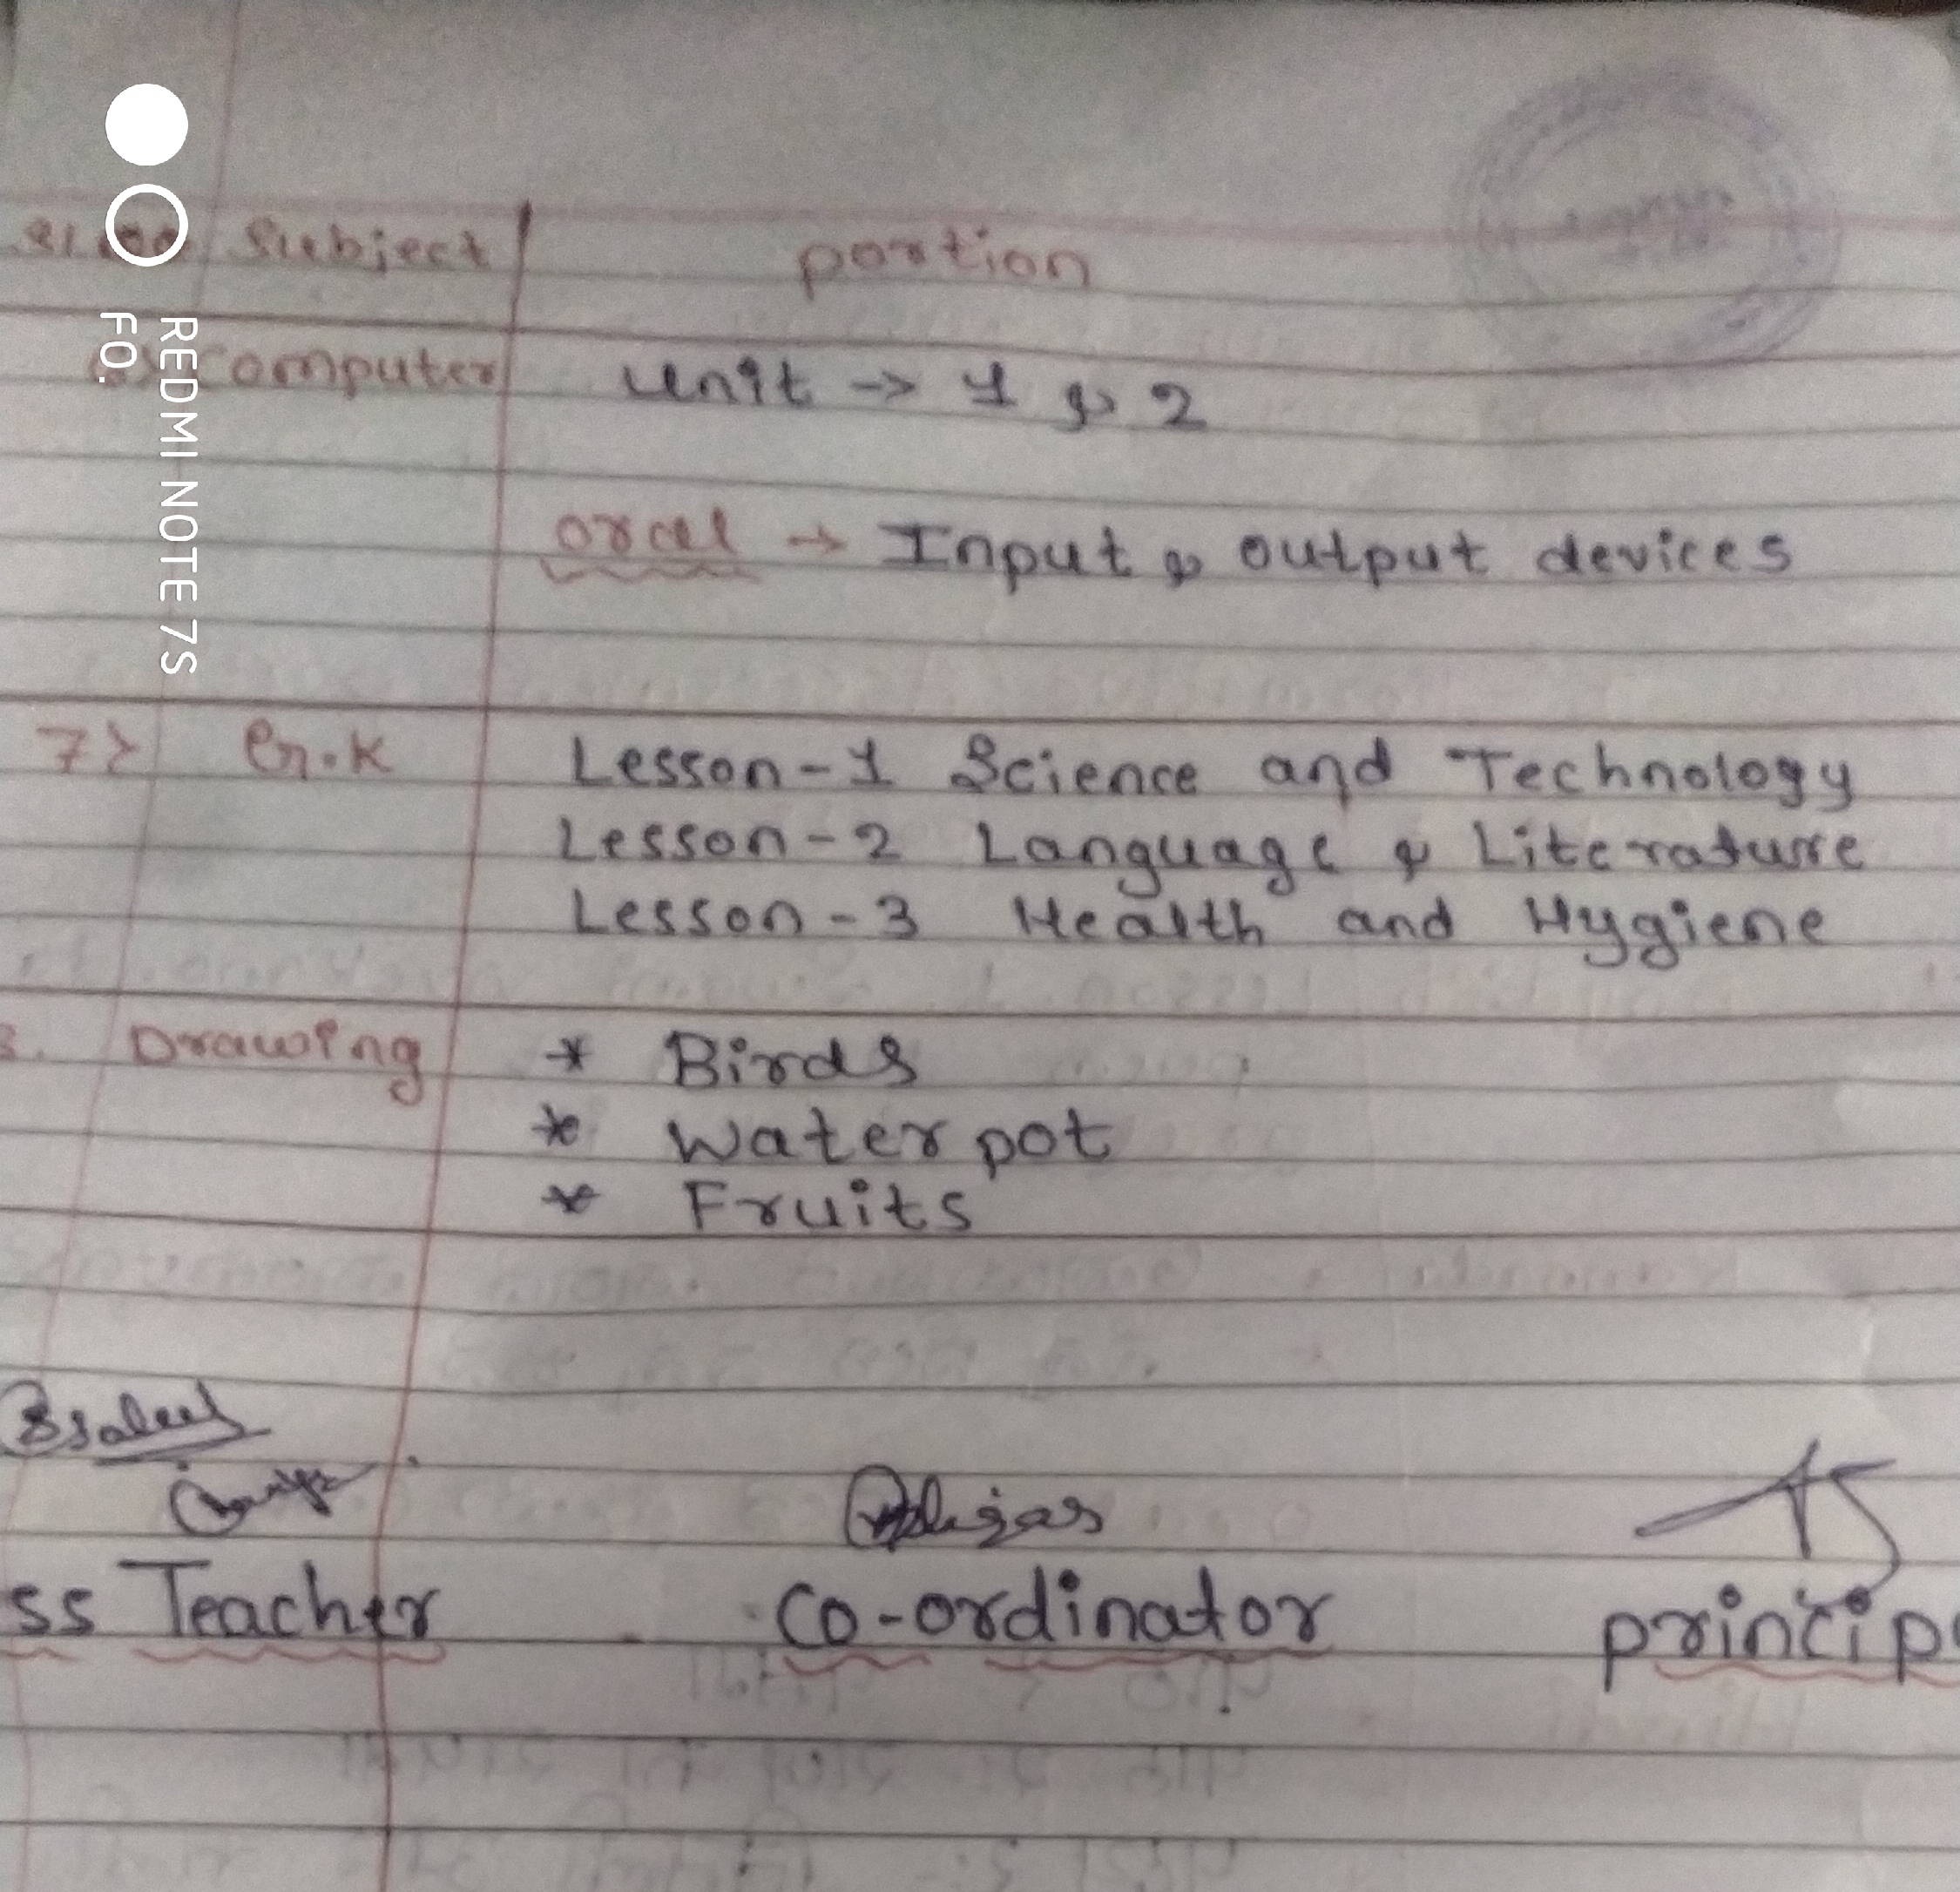 Sl.no Subject portion
6) Computer unit → 1 & 2
oral → Input & output devices
7) G.K Lesson-1 Science and Technology
Lesson-2 Language & Literature
Lesson-3 Health and Hygiene
8. Drawing * Birds
* Water pot
* Fruits
ss Teacher Co-ordinator princip
REDMI NOTE 7S
FO.